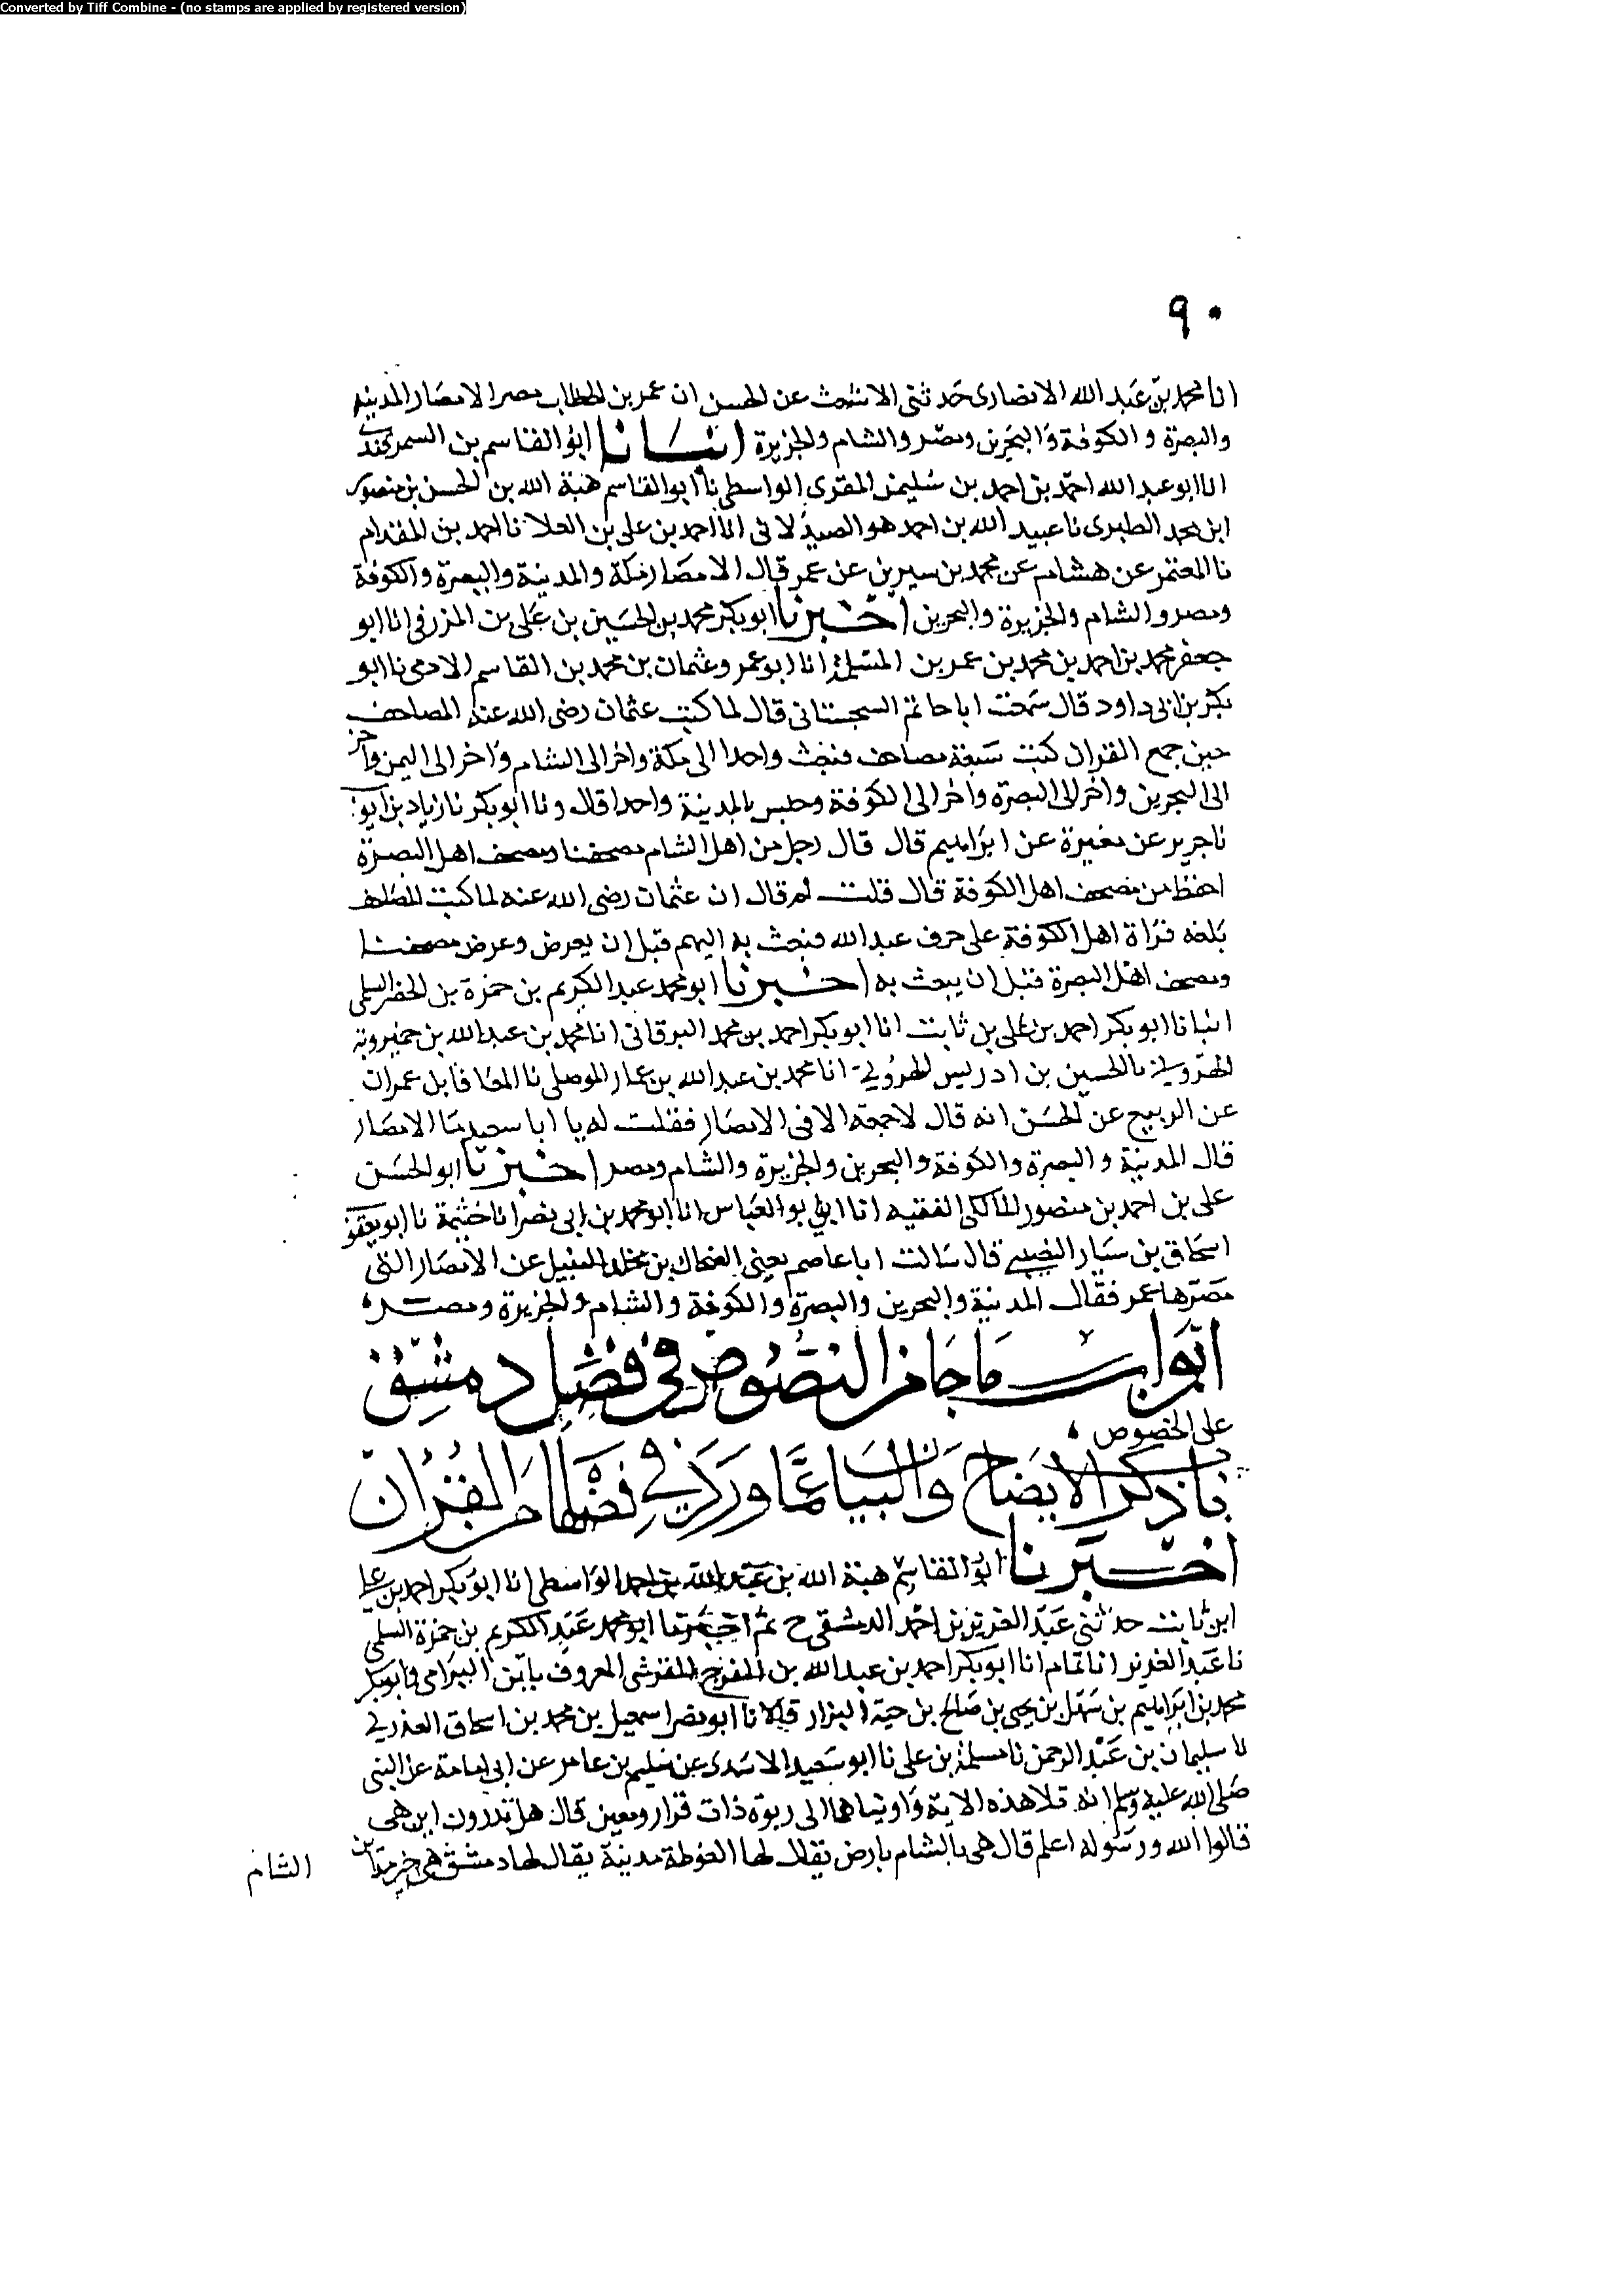 Converted by Tiff Combine - (no stamps are applied by registered version)
٩٠
انا محمد بن عبد الله الانصارى حدثنى الاشعث عن الحسن ان عمر بن الخطاب مصر الامصار المدينة
والبصرة والكوفة والبحرين ومصر والشام والجزيرة انبانا ابو القاسم بن السمرقندى
انا ابو عبد الله احمد بن احمد بن سليمن المقرى الواسطى نا ابو القاسم هبة الله بن الحسن بن منصور
ابن محمد الطبرى نا عبيد الله بن احمد هو الصيدلانى انا احمد بن على بن العلا نا احمد بن المقدام
نا المعتمر عن هشام عن محمد بن سيرين عن عمر قال الامصار مكة والمدينة والبصرة والكوفة
ومصر والشام والجزيرة والبحرين اخبرنا ابو بكر محمد بن الحسين بن على بن المزرفى انا ابو
جعفر محمد بن احمد بن محمد بن عمر بن المسلمة انا ابو عمرو عثمان بن محمد بن القاسم الادمى نا ابو
بكر بن ابى داود قال سمعت ابا حاتم السجستانى قال لما كتب عثمان رضى الله عنه المصاحف
حين جمع القران كتب سبعة مصاحف فبعث واحدا الى مكة واخر الى الشام واخر الى اليمن واخر
الى البحرين واخر الى البصرة واخر الى الكوفة وحبس بالمدينة واحدا قال ونا ابو بكر نا زياد بن ايوب
نا جرير عن مغيرة عن ابراهيم قال قال رجل من اهل الشام مصحفنا ومصحف اهل البصرة
احفظ من مصحف اهل الكوفة قال قلت لم قال ان عثمان رضى الله عنه لما كتب المصاحف
بلغه قراة اهل الكوفة على حرف عبد الله فبعث به اليهم قبل ان يعرض وعرض مصحفنا
ومصحف اهل البصرة قبل ان يبعث به اخبرنا ابو محمد عبد الكريم بن حمزة بن الخضر السلمى
انبانا ابو بكر احمد بن على بن ثابت انا ابو بكر احمد بن محمد البرقانى انا محمد بن عبد الله بن خميرويه
الهروى نا الحسين بن ادريس الهروى انا محمد بن عبد الله بن عمار الموصلى نا المعافا بن عمران
عن الربيع عن الحسن انه قال لا جمعة الا فى الامصار فقلت له يا ابا سعيد ما الامصار
قال المدينة والبصرة والكوفة والبحرين والجزيرة والشام ومصر اخبرنا ابو الحسن
على بن احمد بن منصور المالكى الفقيه انا ابى ابو العباس انا ابو محمد بن ابى نصر انا خثيمة نا ابو يعقوب
اسحاق بن سيار النصيبى قال سالت ابا عاصم يعنى الضحاك بن مخلد النبيل عن الامصار التى
مصرها عمر فقال المدينة والبحرين والبصرة والكوفة والشام والجزيرة ومصر
ابواب ما جا من النصوص فى فضل دمشق
على الخصوص
باب ذكر الايضاح والبيان عما ورد فى فضلها من القران
اخبرنا ابو القاسم هبة الله بن عبد الله بن احمد الواسطى انا ابو بكر احمد بن على
ابن ثابت حدثنى عبد العزيز بن احمد الدمشقى ح ثم اخبرنا ابو محمد عبد الكريم بن حمزة السلمى
نا عبد العزيز انا تمام انا ابو بكر احمد بن عبد الله بن الفرج القرشى المعروف بابن البرامى وابو بكر
محمد بن ابراهيم بن سهل بن يحيى بن صالح بن حية البزاز قالا نا ابو نصر اسمعيل بن محمد بن اسحاق العذرى
نا سليمان بن عبد الرحمن نا مسلمة بن على نا ابو سعيد الاسدى عن سليم بن عامر عن ابى امامة عن النبى
صلى الله عليه وسلم انه تلا هذه الاية واويناهما الى ربوة ذات قرار ومعين قال هل تدرون اين هى
قالوا الله ورسوله اعلم قال هى بالشام بارض يقال لها الغوطة مدينة يقال لها دمشق هى خير مداين
الشام